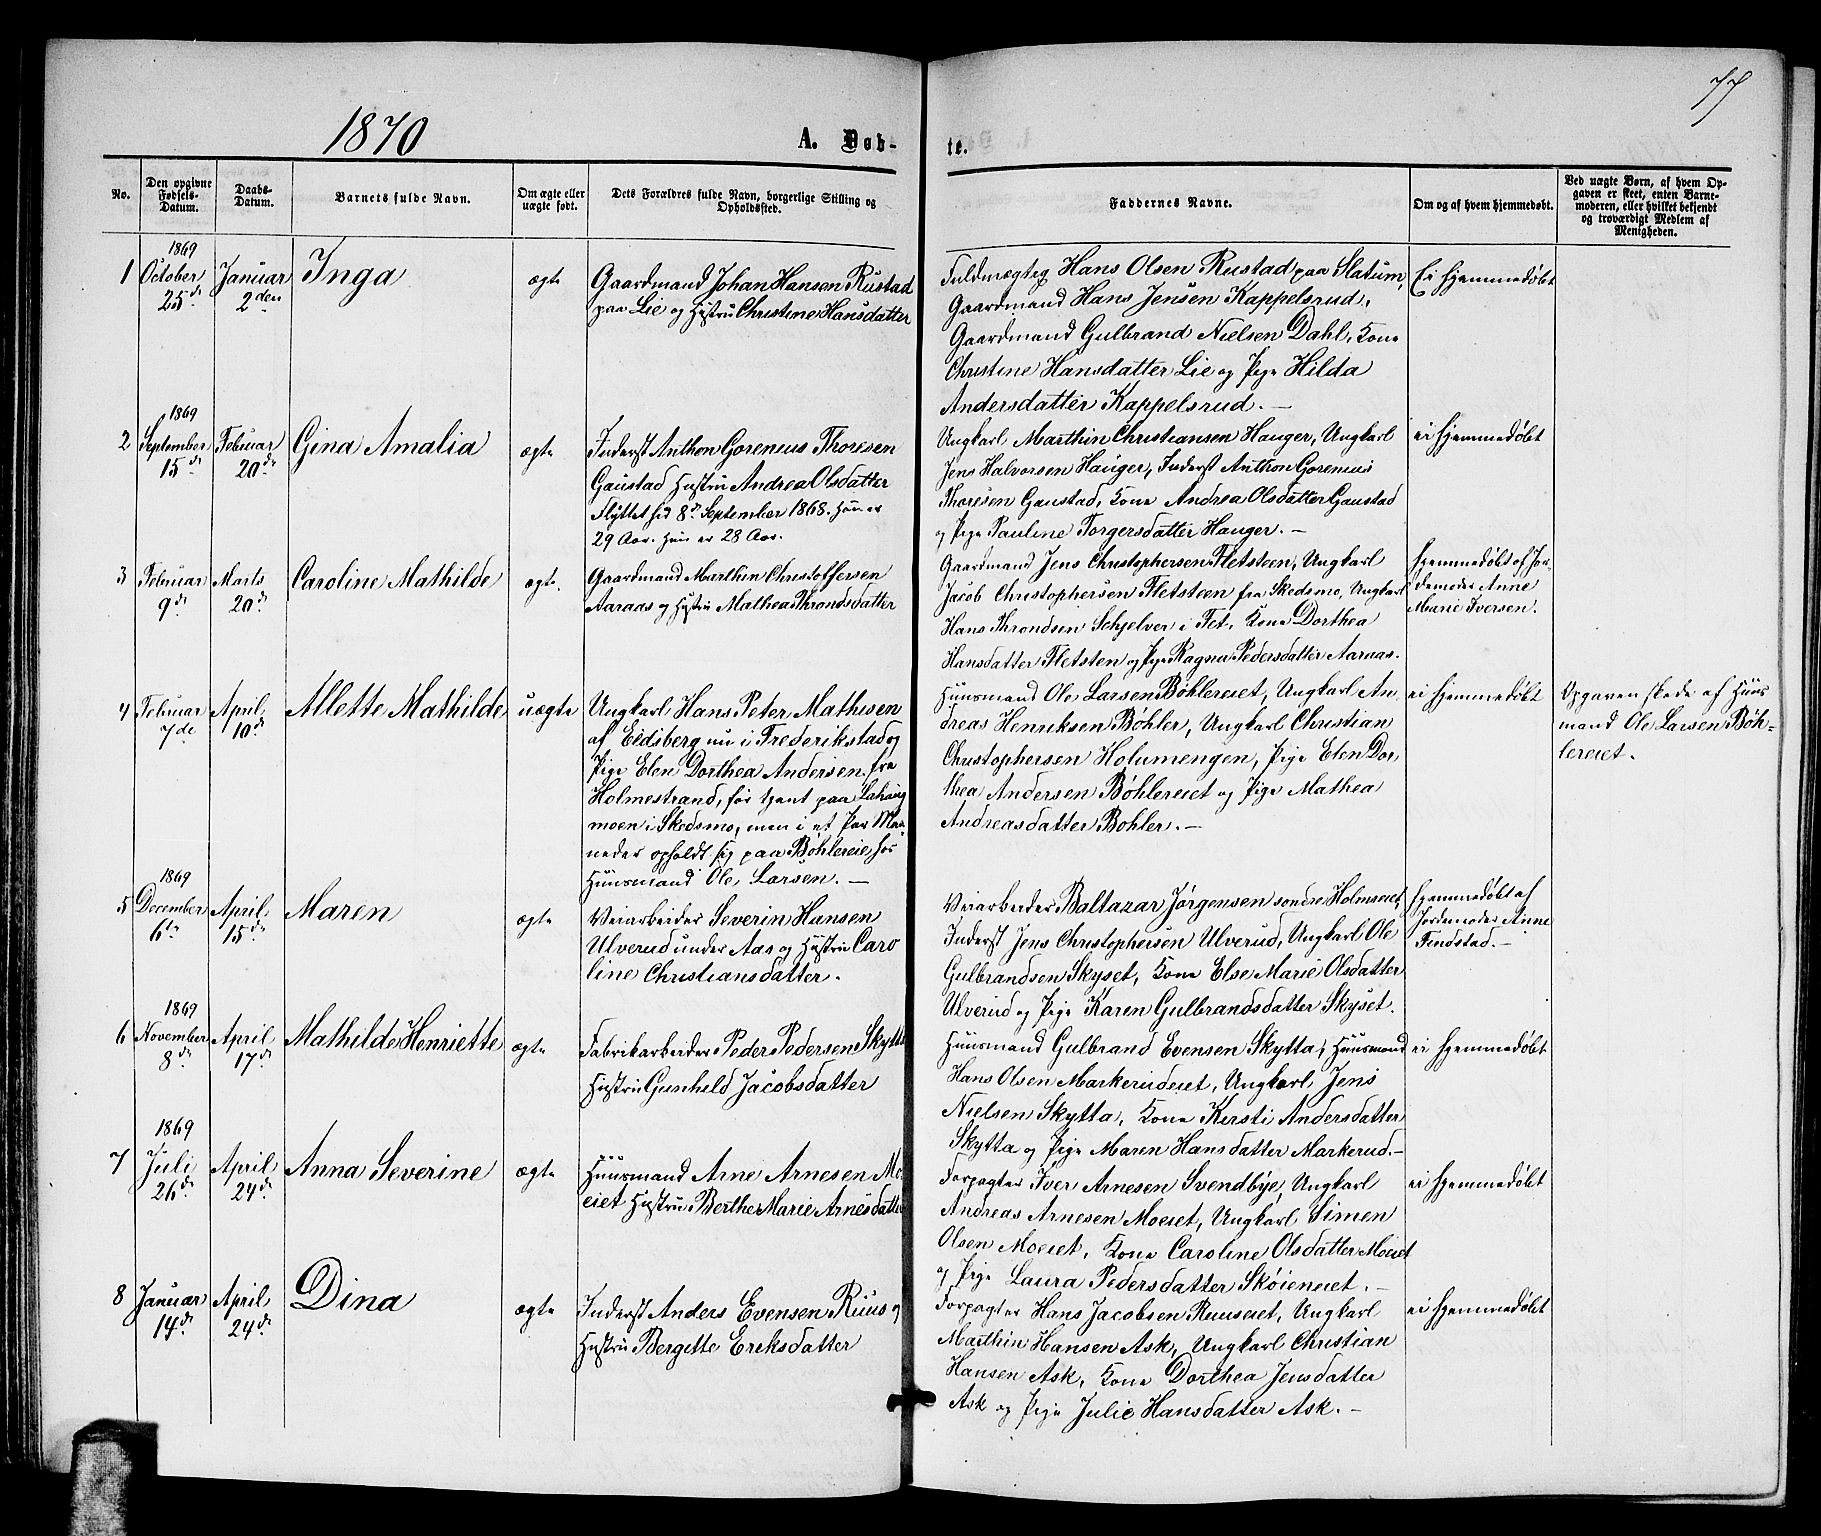 77
1870
A. Døb-
te.
No.
Den opgivne
Fødsels-
Datum.
Daabs-
Datum.
Barnets fulde Navn.
Om ægte eller
uægte født.
Dets Forældres fulde Navn, borgerlige Stilling og
Opholdssted.
Faddernes Navne.
Om og af hvem hjemmedøbt.
Ved uægte Børn, af hvem Op-
gaven er skeet, enten Barne-
moderen, eller hvilket bekjendt
og troværdigt Medlem af
Menigheden.
1
1869
October
25de
Januar
2den
Inga
ægte
Gaardmand Johan Hansen Rustad
paa Lie og Hustru Christine Hansdatter
Fuldmægtig Hans Olsen Rustad paa Slatum,
Gaardmand Hans Jensen Kappelsrud,
Gaardmand Gulbrand Nielsen Dahl, Kone
Christine Hansdatter Lie og Pige Hilda
Andersdatter Kappelsrud. —
Ei hjemmedøbt
2
1869
September
15de
Februar
20de
Gina Amalia
ægte
Inderst Anthon Gorenius Thoresen
Gaustad Hustru Andrea Olsdatter
Flyttet hid 8de September 1868. Han er
29 Aar. Hun er 28 Aar.
Ungkarl Marthin Christiansen Hauger, Ungkarl
Jens Halvorsen Hauger, Inderst Anthon Gorenius
Thoresen Gaustad, Kone Andrea Olsdatter Gaustad
og Pige Pauline Torgersdatter Hauger. —
ei hjemmedøbt
3
Februar
9de
Marts
20de
Caroline Mathilde
ægte.
Gaardmand Marthin Christoffersen
Aaraas og Hustru Mathea Throndsdatter
Gaardmand Jens Christophersen Fletsteen, Ungkarl
Jacob Christophersen Fletsteen fra Skedsmo, Ungkarl
Hans Throndsen Schjelver i Fet, Kone Dorthea
Hansdatter Fletsten og Pige Ragna Pedersdatter Aaraas.
hjemmedøbt af Jor-
demoder Anne
Marie Iversen.
4
Februar
7de
April
10de
Allette Mathilde
uægte
Ungkarl Hans Peter Mathisen
af Eidsberg nu i Frederikstad og
Pige Elen Dorthea Andersen fra
Holmestrand, før tjent paa Lahaug
moen i Skedsmo, men i et Par Maa-
neder opholdt sig paa Bøhlereie, hos
Huusmand Ole Larsen. —
Huusmand Ole Larsen Bøhlereiet, Ungkarl An
dreas Henriksen Bøhler, Ungkarl Christian
Christophersen Holumengen, Pige Elen Dor
thea Andersen Bøhlereiet og Pige Mathea
Andreasdatter Bøhler. —
ei hjemmedøbt
Opgaven skede af Huus
mand Ole Larsen Bøh-
lereiet.
5
1869
December
6te
April
15de
Maren
ægte
Veiarbeider Severin Hansen
Ulverud under Aas og Hustru Caro
line Christiansdatter.
Veiarbeider Baltazar Jørgensen søndre Holmseiet,
Inderst Jens Christophersen Ulverud, Ungkarl Ole
Gulbrandsen Skyset, Kone Else Marie Olsdatter
Ulverud og Pige Karen Gulbrandsdatter Skyset.
hjemmedøbt af
Jordemoder Anne
Findstad. —
6
1869
November
8de
April
17de
Mathilde Henriette
ægte
Fabrikarbeider Peder Pedersen Skytta
Hustru Gunhild Jacobsdatter
Huusmand Gulbrand Evensen Skytta, Huusmand
Hans Olsen Markerudeiet, Ungkarl Jens
Nielsen Skytta, Kone Kirsti Andersdatter
Skytta og Pige Maren Hansdatter Markerud. —
ei hjemmedøbt
7
1869
Juli
26de
April
24de
Anna Severine
ægte
Huusmand Arne Arnesen Mo-
eiet Hustru Berthe Marie Arnesdatter
Forpagter Iver Arnesen Svendbye, Ungkarl
Andreas Arnesen Moeiet, Ungkarl Simen
Olsen Moeiet, Kone Caroline Olsdatter Moeiet
og Pige Laura Pedersdatter Skøieneiet. —
ei hjemmedøbt
8
Januar
14de
April
24de
Dina
ægte
Inderst Anders Evensen Ruus og
Hustru Bergitte Eriksdatter
Forpagter Hans Jacobsen Ruuseiet, Ungkarl
Marthin Hansen Ask, Ungkarl Christian
Hansen Ask, Kone Dorthea Jensdatter
Ask og Pige Julie Hansdatter Ask. —
ei hjemmedøbt